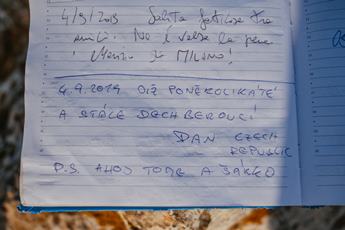 4/9/2019 Salita faticosa tra
amici. Ne è valsa la pena
da MILANO!
4.9.2019 OIŽ PONĚKOLIKÁTÉ
A STÁLE DECHBEROUCÍ
DAN CZECH
REPUBLIC
P.S. AHOJ TOME A ŠÁRKO